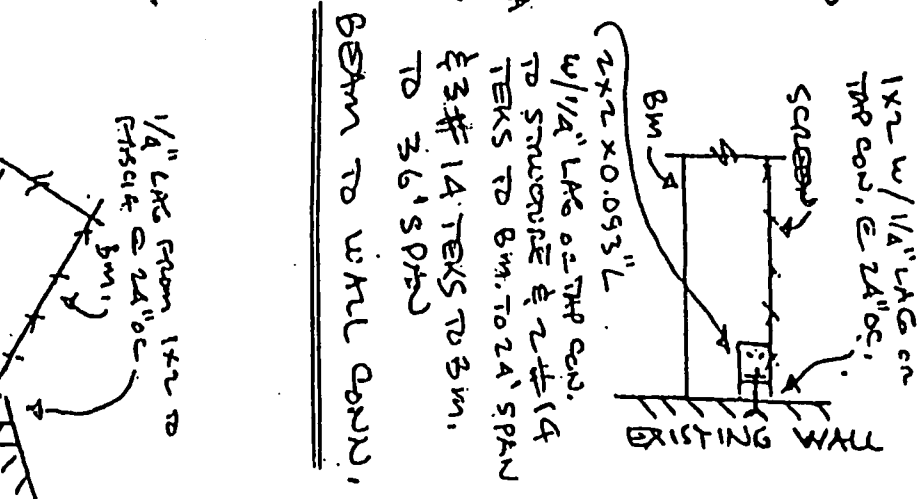 1x2 W/ 1/4" LAG OR
TAP CON. @ 24" OC.
SCREEN
BM.
2x2 x 0.093" L
W/ 1/4" LAG OR TAP CON.
TO STRUCTURE & 2 #14
TEKS TO BM. TO 24' SPAN
& 3 #14 TEKS TO BM.
TO 36' SPAN
EXISTING WALL
BEAM TO WALL CONN.
1/4" LAG FROM 1x2 TO
FASCIA @ 24" OC
BM.